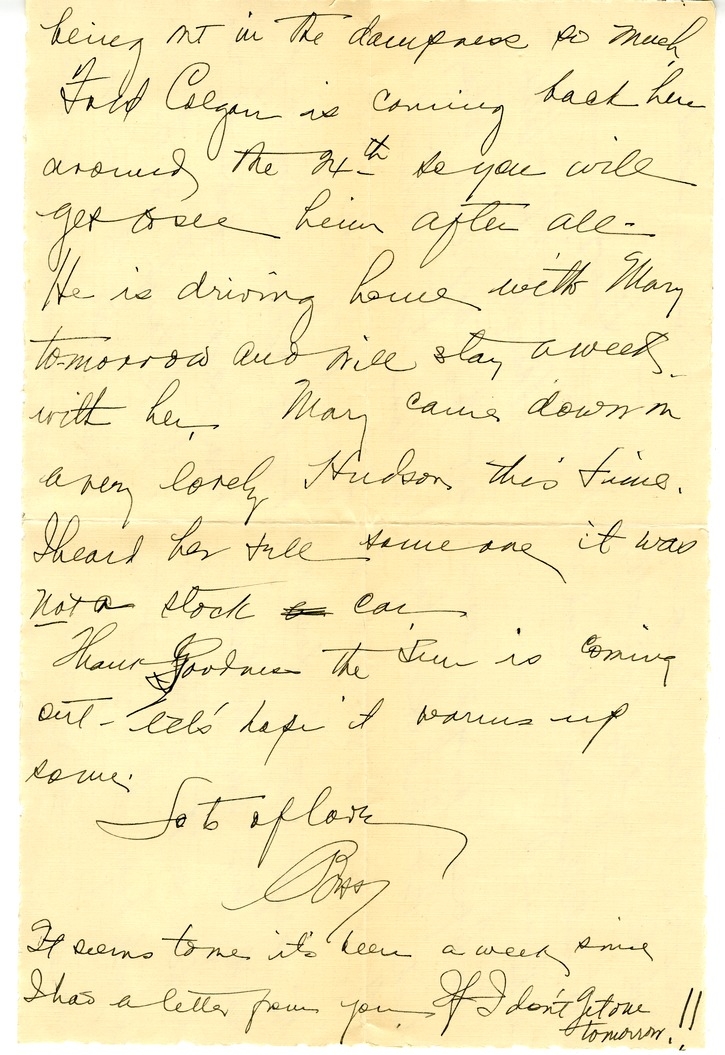 being out in the dampness so much
Colgan is coming back here
around the 24th so you will
get to see him after all-
He is driving home with Mary
tomorrow and will stay a week
with her. Mary came down in
a very lovely Hudson this time.
I heard her tell someone it was
not a stock car
Thank Goodness the Sun is coming
out - let's hope it warms up
some.
Lots of love
It seems to me it's been a week since
I had a letter from you. If I don't get one
tomorrow.!!